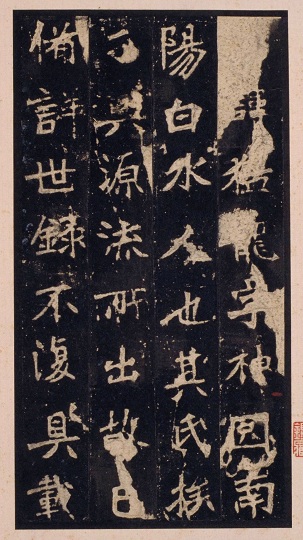 諱猛龍字神囧南
陽白水人也其氏族
興源流所出故已
備詳世録不復具載